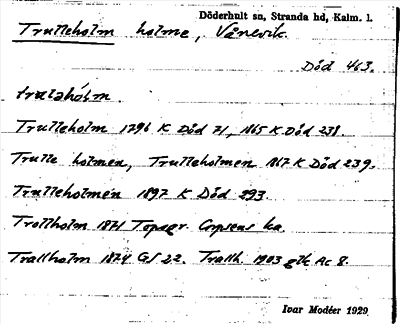 Döderhult sn, Stranda hd, Kalm. l.
Trulleholm holme, Vånevik.
Död 463.
trulahólm.
Trulleholm 1796 K Död 71, 1865 K Död 238.
Trulle holmen, Trulleholmen 1867 K Död 239.
Trulleholmen 1897 K Död 293.
Trollholm 1871 Topogr. Corpsens ka.
Trallholm 1874 GS 22. Trallh. 1903 gtk Ac 8.
Ivar Modéer 1929